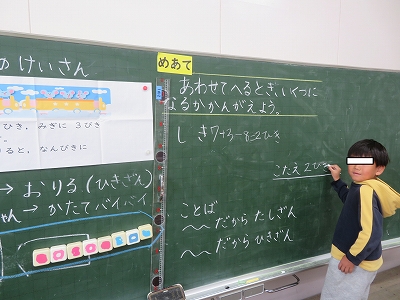 のけいさん
ひき。みぎに 3びき
ると、なんびきに
→ おりる(ひきざん)
→ かたてバイバイ
めあて
あわせてへるとき、いくつに
なるかかんがえよう。
しき7+3-8=2ひき
こたえ 2ひき
ことば
だから たしざん
だから ひきざん